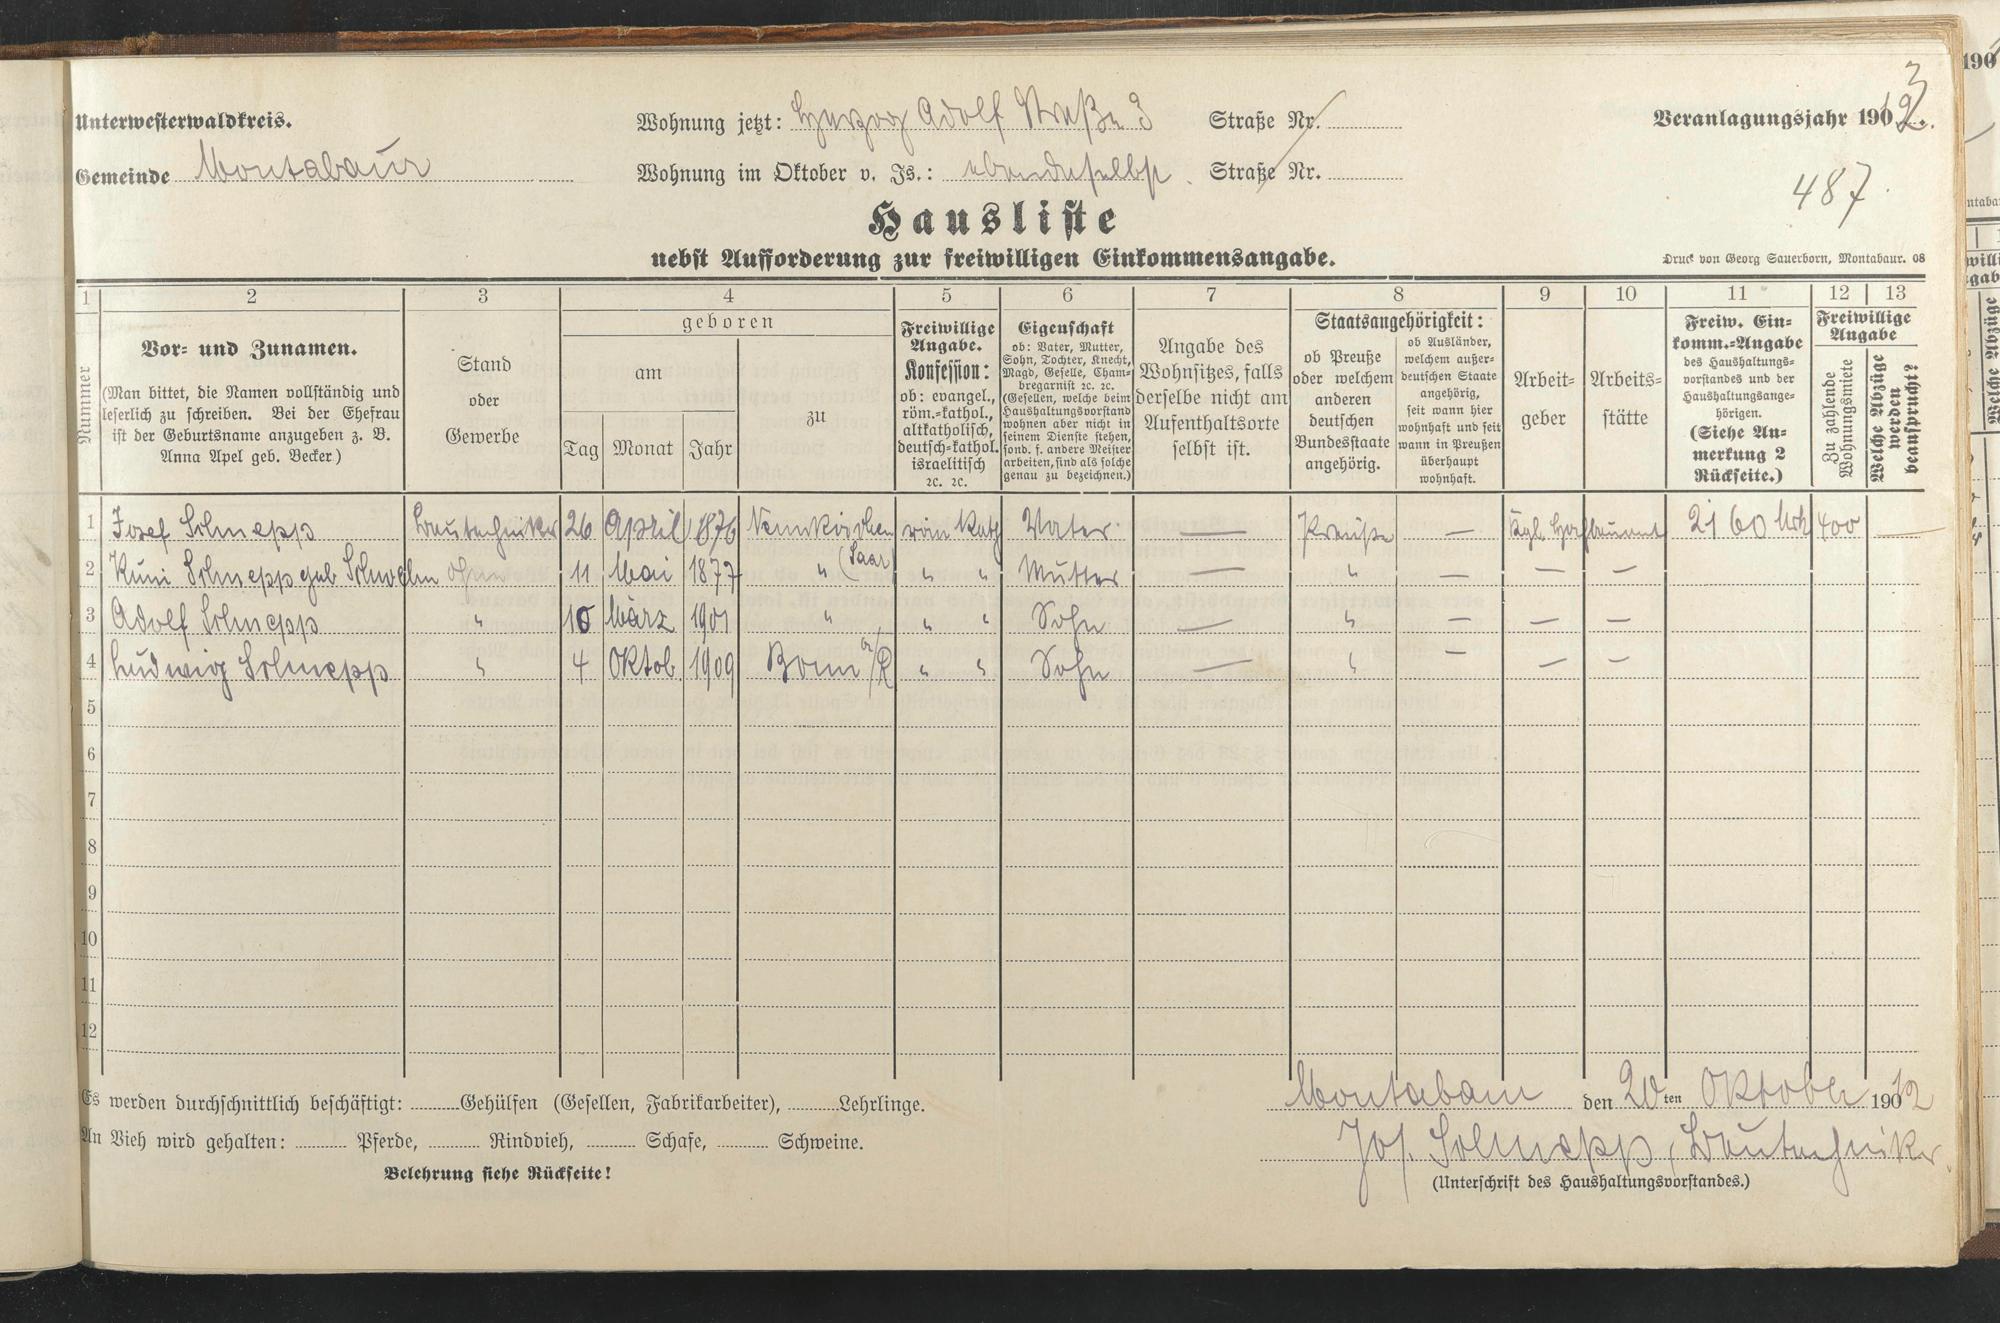 Unterwesterwaldkreis.
Wohnung jetzt: Herzog Adolf Straße 3 Straße Nr.
Veranlagungsjahr 1912. 3
Gemeinde Montabaur
Wohnung im Oktober v. Js.: ebendaselbst. Straße Nr.
487
Hausliste
nebst Aufforderung zur freiwilligen Einkommensangabe.
Druck von Georg Sauerborn, Montabaur. 08
1 2 3 4 5 6 7 8 9 10 11 12 13
Nummer
Vor- und Zunamen.
(Man bittet, die Namen vollständig und
leserlich zu schreiben. Bei der Ehefrau
ist der Geburtsname anzugeben z. B.
Anna Apel geb. Becker.)
Stand
oder
Gewerbe
geboren
am
Tag Monat Jahr
zu
Freiwillige
Angabe.
Konfession:
ob: evangel.,
röm.-kathol.,
altkatholisch,
deutsch-kathol.
israelitisch
2c. 2c.
Eigenschaft
ob: Vater, Mutter,
Sohn, Tochter, Knecht,
Magd, Geselle, Cham-
bregarnist 2c. 2c.
(Gesellen, welche beim
Haushaltungsvorstand
wohnen aber nicht in
seinem Dienste stehen,
sond. f. andere Meister
arbeiten, sind als solche
genau zu bezeichnen.)
Angabe des
Wohnsitzes, falls
derselbe nicht am
Aufenthaltsorte
selbst ist.
Staatsangehörigkeit:
ob Preuße
oder welchem
anderen
deutschen
Bundesstaate
angehörig.
ob Ausländer,
welchem außer-
deutschen Staate
angehörig,
seit wann hier
wohnhaft und seit
wann in Preußen
überhaupt
wohnhaft.
Arbeit-
geber
Arbeits-
stätte
Freiw. Ein-
komm.-Angabe
des Haushaltungs-
vorstandes und der
Haushaltungsange-
hörigen.
(Siehe An-
merkung 2
Rückseite.)
Freiwillige
Angabe
Zu zahlende
Wohnungsmiete
Welche Abzüge
werden
beansprucht?
1 Josef Schnepp Bautechniker 26 April 1876 Neunkirchen (Saar) röm Kath Vater — Preuße — Kgl. Hochbauamt 2160 Mrk 400 —
2 Kuni Schnepp geb Schwelm ohne 11 Mai 1877 " " " Mutter — " — — —
3 Adolf Schnepp " 10 März 1901 " " " Sohn — " — — —
4 Ludwig Schnepp " 4 Oktob. 1909 Bonn a/R " " Sohn — " — — —
5
6
7
8
9
10
11
12
Es werden durchschnittlich beschäftigt: Gehülfen (Gesellen, Fabrikarbeiter), Lehrlinge.
Montabaur den 20ten Oktober 1912
An Vieh wird gehalten: Pferde, Rindvieh, Schafe, Schweine.
Jos. Schnepp, Bautechniker.
Belehrung siehe Rückseite!
(Unterschrift des Haushaltungsvorstandes.)